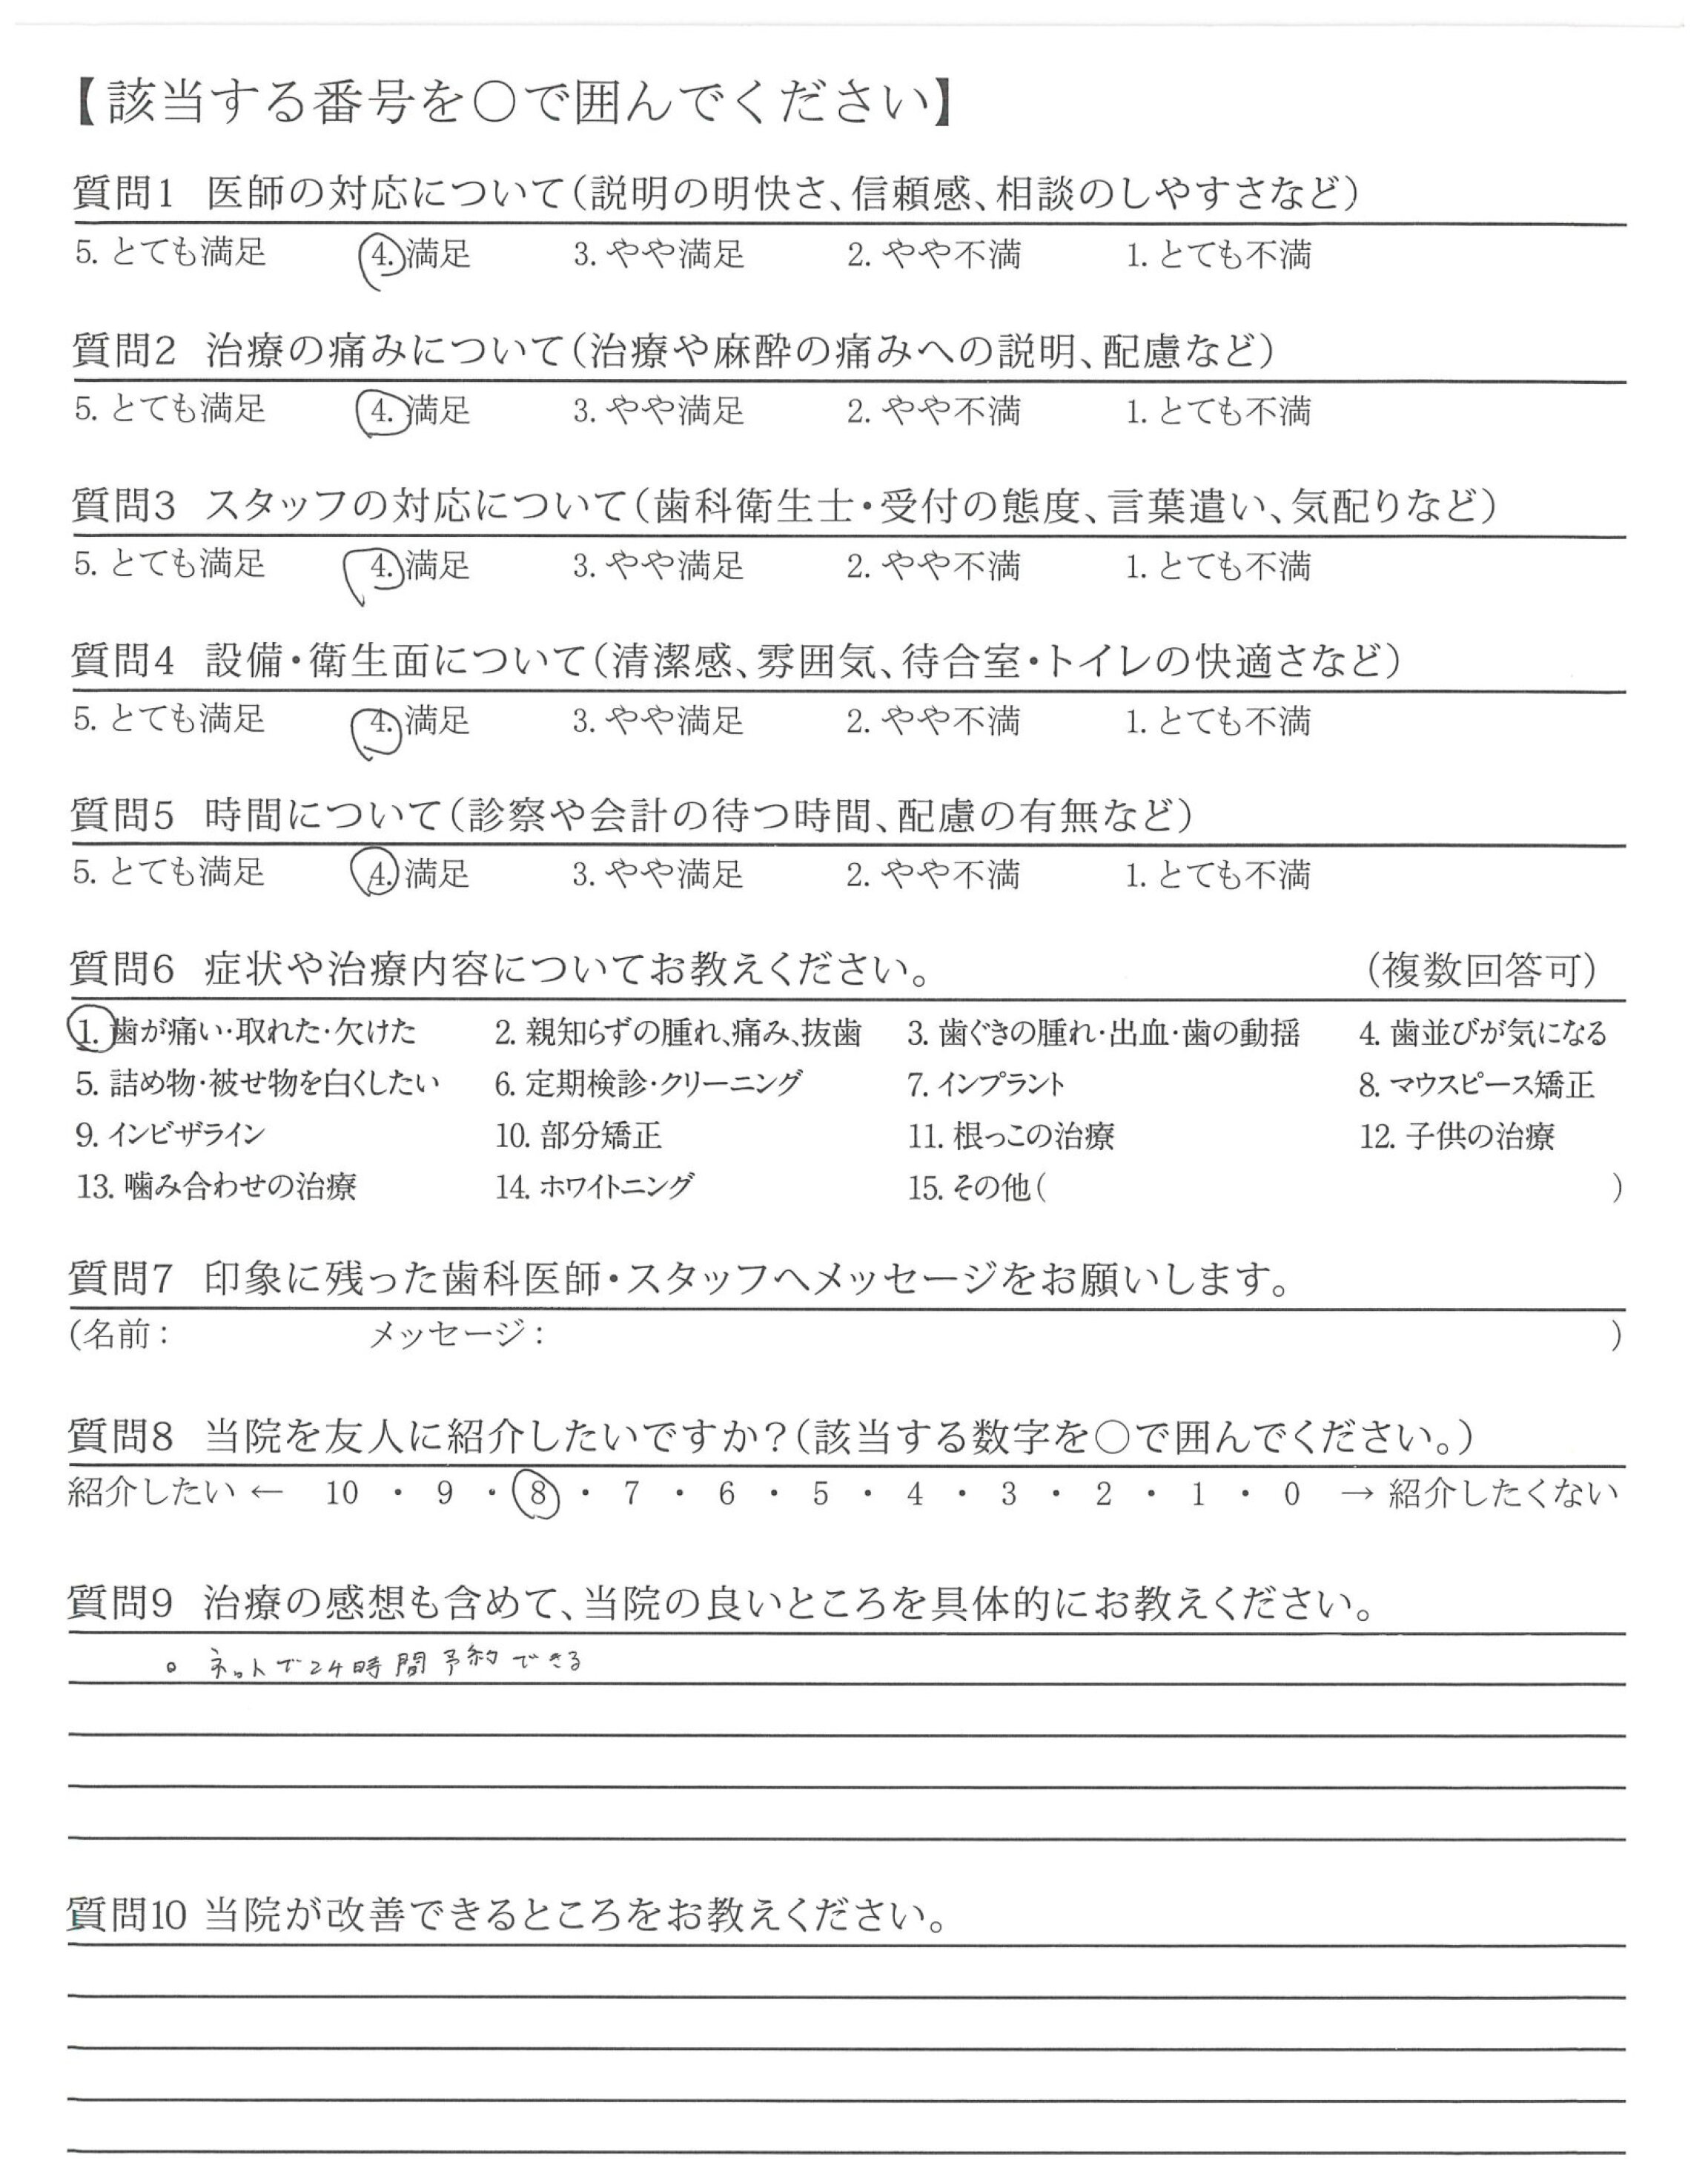 【該当する番号を〇で囲んでください】
質問1 医師の対応について(説明の明快さ、信頼感、相談のしやすさなど)
5. とても満足 4. 満足 3. やや満足 2. やや不満 1. とても不満
質問2 治療の痛みについて(治療や麻酔の痛みへの説明、配慮など)
5. とても満足 4. 満足 3. やや満足 2. やや不満 1. とても不満
質問3 スタッフの対応について(歯科衛生士・受付の態度、言葉遣い、気配りなど)
5. とても満足 4. 満足 3. やや満足 2. やや不満 1. とても不満
質問4 設備・衛生面について(清潔感、雰囲気、待合室・トイレの快適さなど)
5. とても満足 4. 満足 3. やや満足 2. やや不満 1. とても不満
質問5 時間について(診察や会計の待つ時間、配慮の有無など)
5. とても満足 4. 満足 3. やや満足 2. やや不満 1. とても不満
質問6 症状や治療内容についてお教えください。 (複数回答可)
1. 歯が痛い・取れた・欠けた 2. 親知らずの腫れ、痛み、抜歯 3. 歯ぐきの腫れ・出血・歯の動揺 4. 歯並びが気になる
5. 詰め物・被せ物を白くしたい 6. 定期検診・クリーニング 7. インプラント 8. マウスピース矯正
9. インビザライン 10. 部分矯正 11. 根っこの治療 12. 子供の治療
13. 噛み合わせの治療 14. ホワイトニング 15. その他( )
質問7 印象に残った歯科医師・スタッフへメッセージをお願いします。
(名前: メッセージ: )
質問8 当院を友人に紹介したいですか?(該当する数字を〇で囲んでください。)
紹介したい ← 10 ・ 9 ・ 8 ・ 7 ・ 6 ・ 5 ・ 4 ・ 3 ・ 2 ・ 1 ・ 0 → 紹介したくない
質問9 治療の感想も含めて、当院の良いところを具体的にお教えください。
。 ネットで24時間予約できる
質問10 当院が改善できるところをお教えください。